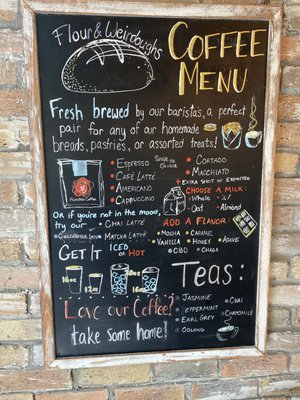 Flour & Weirdoughs
COFFEE
MENU
Fresh brewed by our barista's, a perfect
pair for any of our homemade
breads, pastries, or assorted treats!
• Espresso Single or Double
• Café Latté
• Americano
• Cappuccino
• Cortado
• Macchiato
+ Extra Shot of Espresso
Choose a Milk:
• Whole • 2%
• Oat • Almond
Or if you're not in the mood,
try our
• Chai Latté
• Matcha Latté
Add a Flavor:
• Mocha • Caramel
• Vanilla • Honey • Agave
• CBD • Chaga
Get it Iced
or Hot
16oz 12oz
Love our Coffee?
take some home!
Teas:
• Jasmine
• Peppermint
• Earl Grey
• Oolong
• Chai
• Chamomile